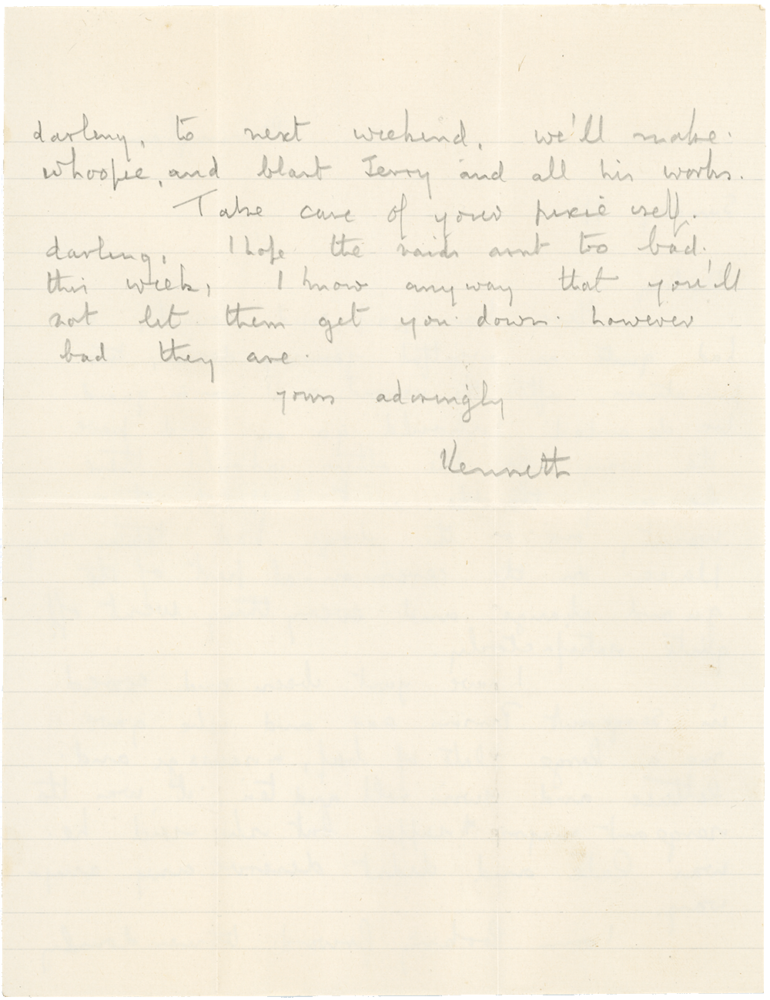 darling, to next weekend. we'll make
whoopie, and blast Jerry and all his works.
Take care of your pixie self.
darling, I hope the raids arnt too bad.
this week, I know anyway that you'll
not let them get you down. however
bad they are.
yours adoringly
Kenneth